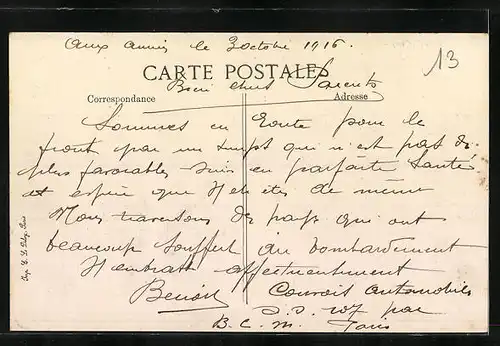 Aux armées le 3 octobre 1916.
13
CARTE POSTALE
Bien chers Parents
Correspondance
Adresse
Sommes en Route pour le
front par un temps qui n'est pas de
plus favorables suis en parfaite santé
et espère que êtes de même
Nous traversons de pays qui ont
beaucoup souffert du bombardement
affectueusement
Benoit
Convois Automobiles
par
B. C. M. Paris